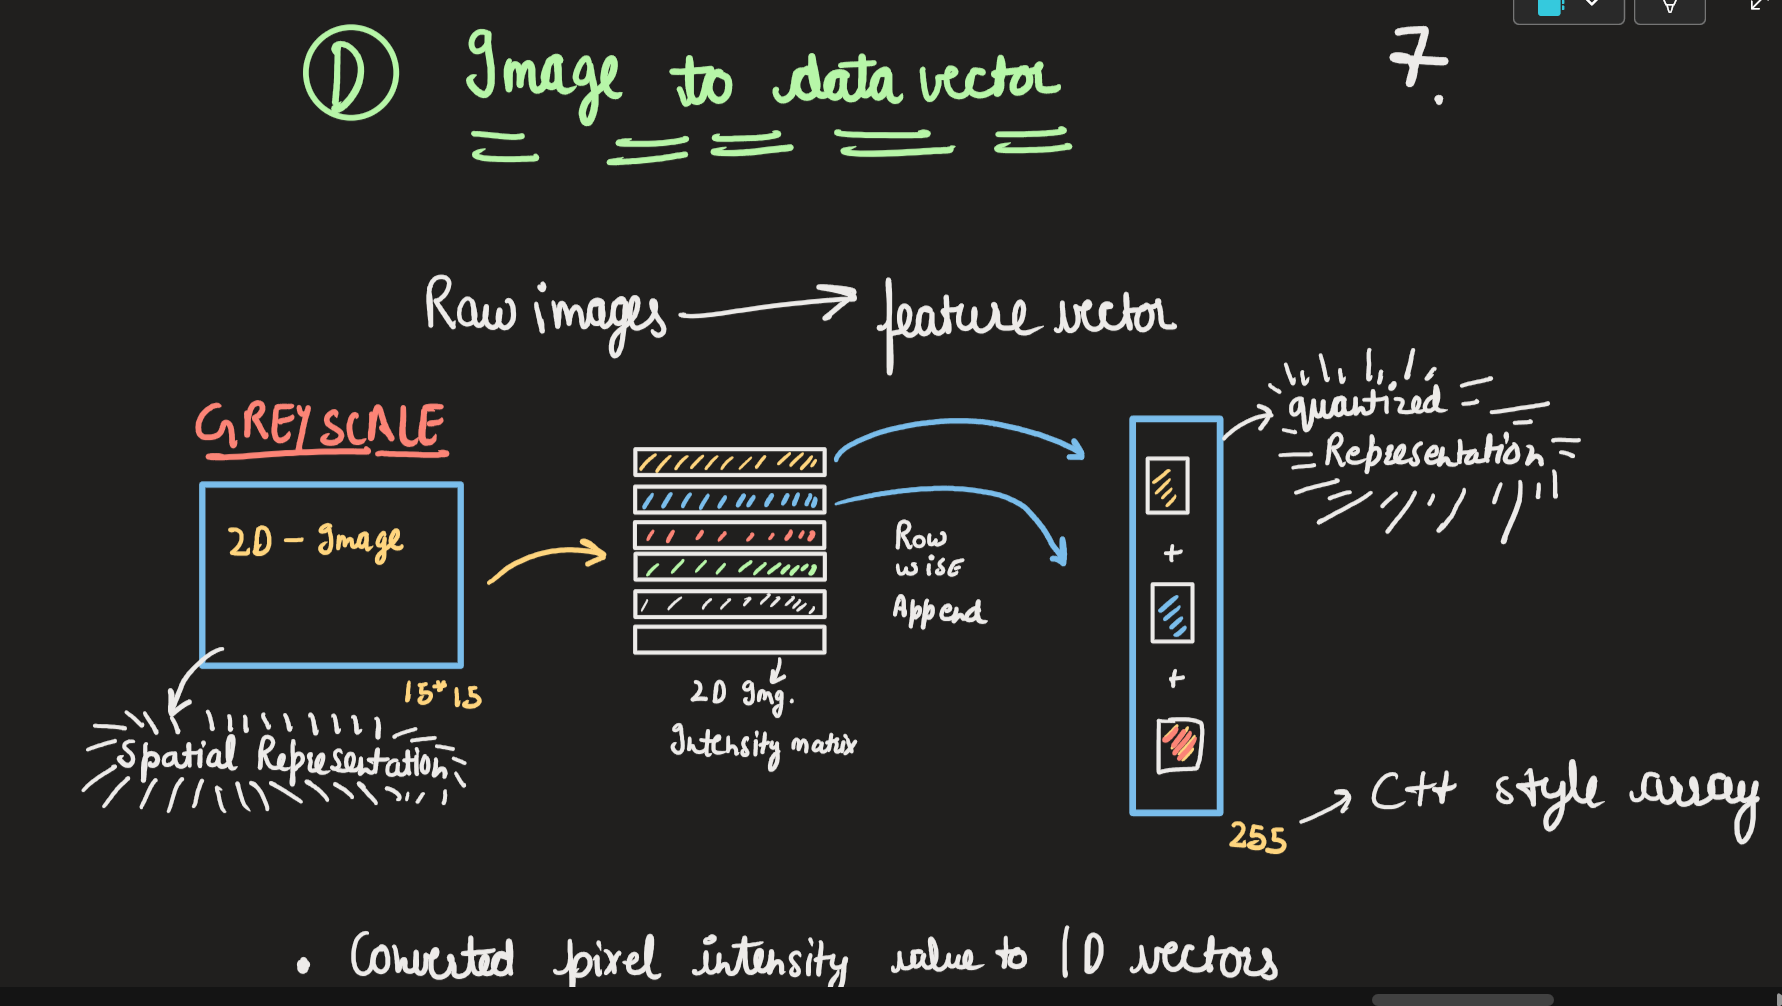 D Image to data vector
7.
Raw images → feature vector
GREYSCALE
2D - Image
15*15
Spatial Representation
2D Img.
Intensity matrix
Row
wise
Append
+
+
quantized
Representation
255
C++ style array
• Converted pixel intensity value to 1D vectors